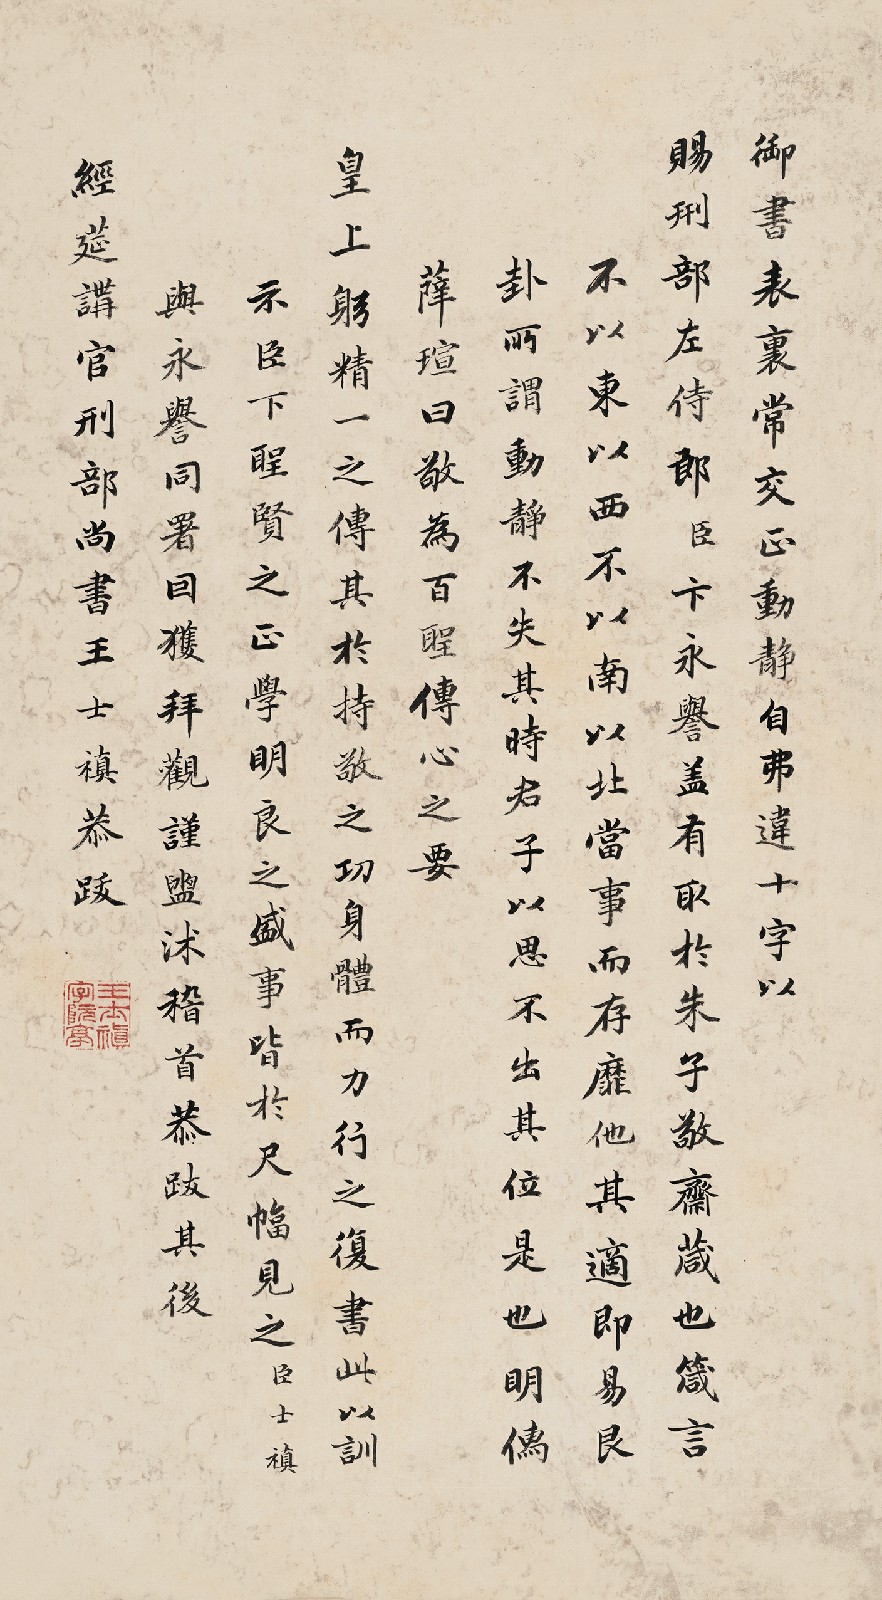 御書表裏常交正動靜自弗違十字以
賜刑部左侍郎臣卞永譽盖有取於朱子敬齋葴也箴言
不以東以西不以南以北當事而存靡他其適即易艮
卦所謂動靜不失其時君子以思不出其位是也明儒
薛瑄曰敬為百聖傳心之要
皇上躬精一之傳其於持敬之功身體而力行之復書此以訓
示臣下聖賢之正學明良之盛事皆於尺幅見之臣士禛
與永譽同署因獲拜觀謹盥沐稽首恭跋其後
經筵講官刑部尚書王士禛恭跋
王士禛
字阮亭